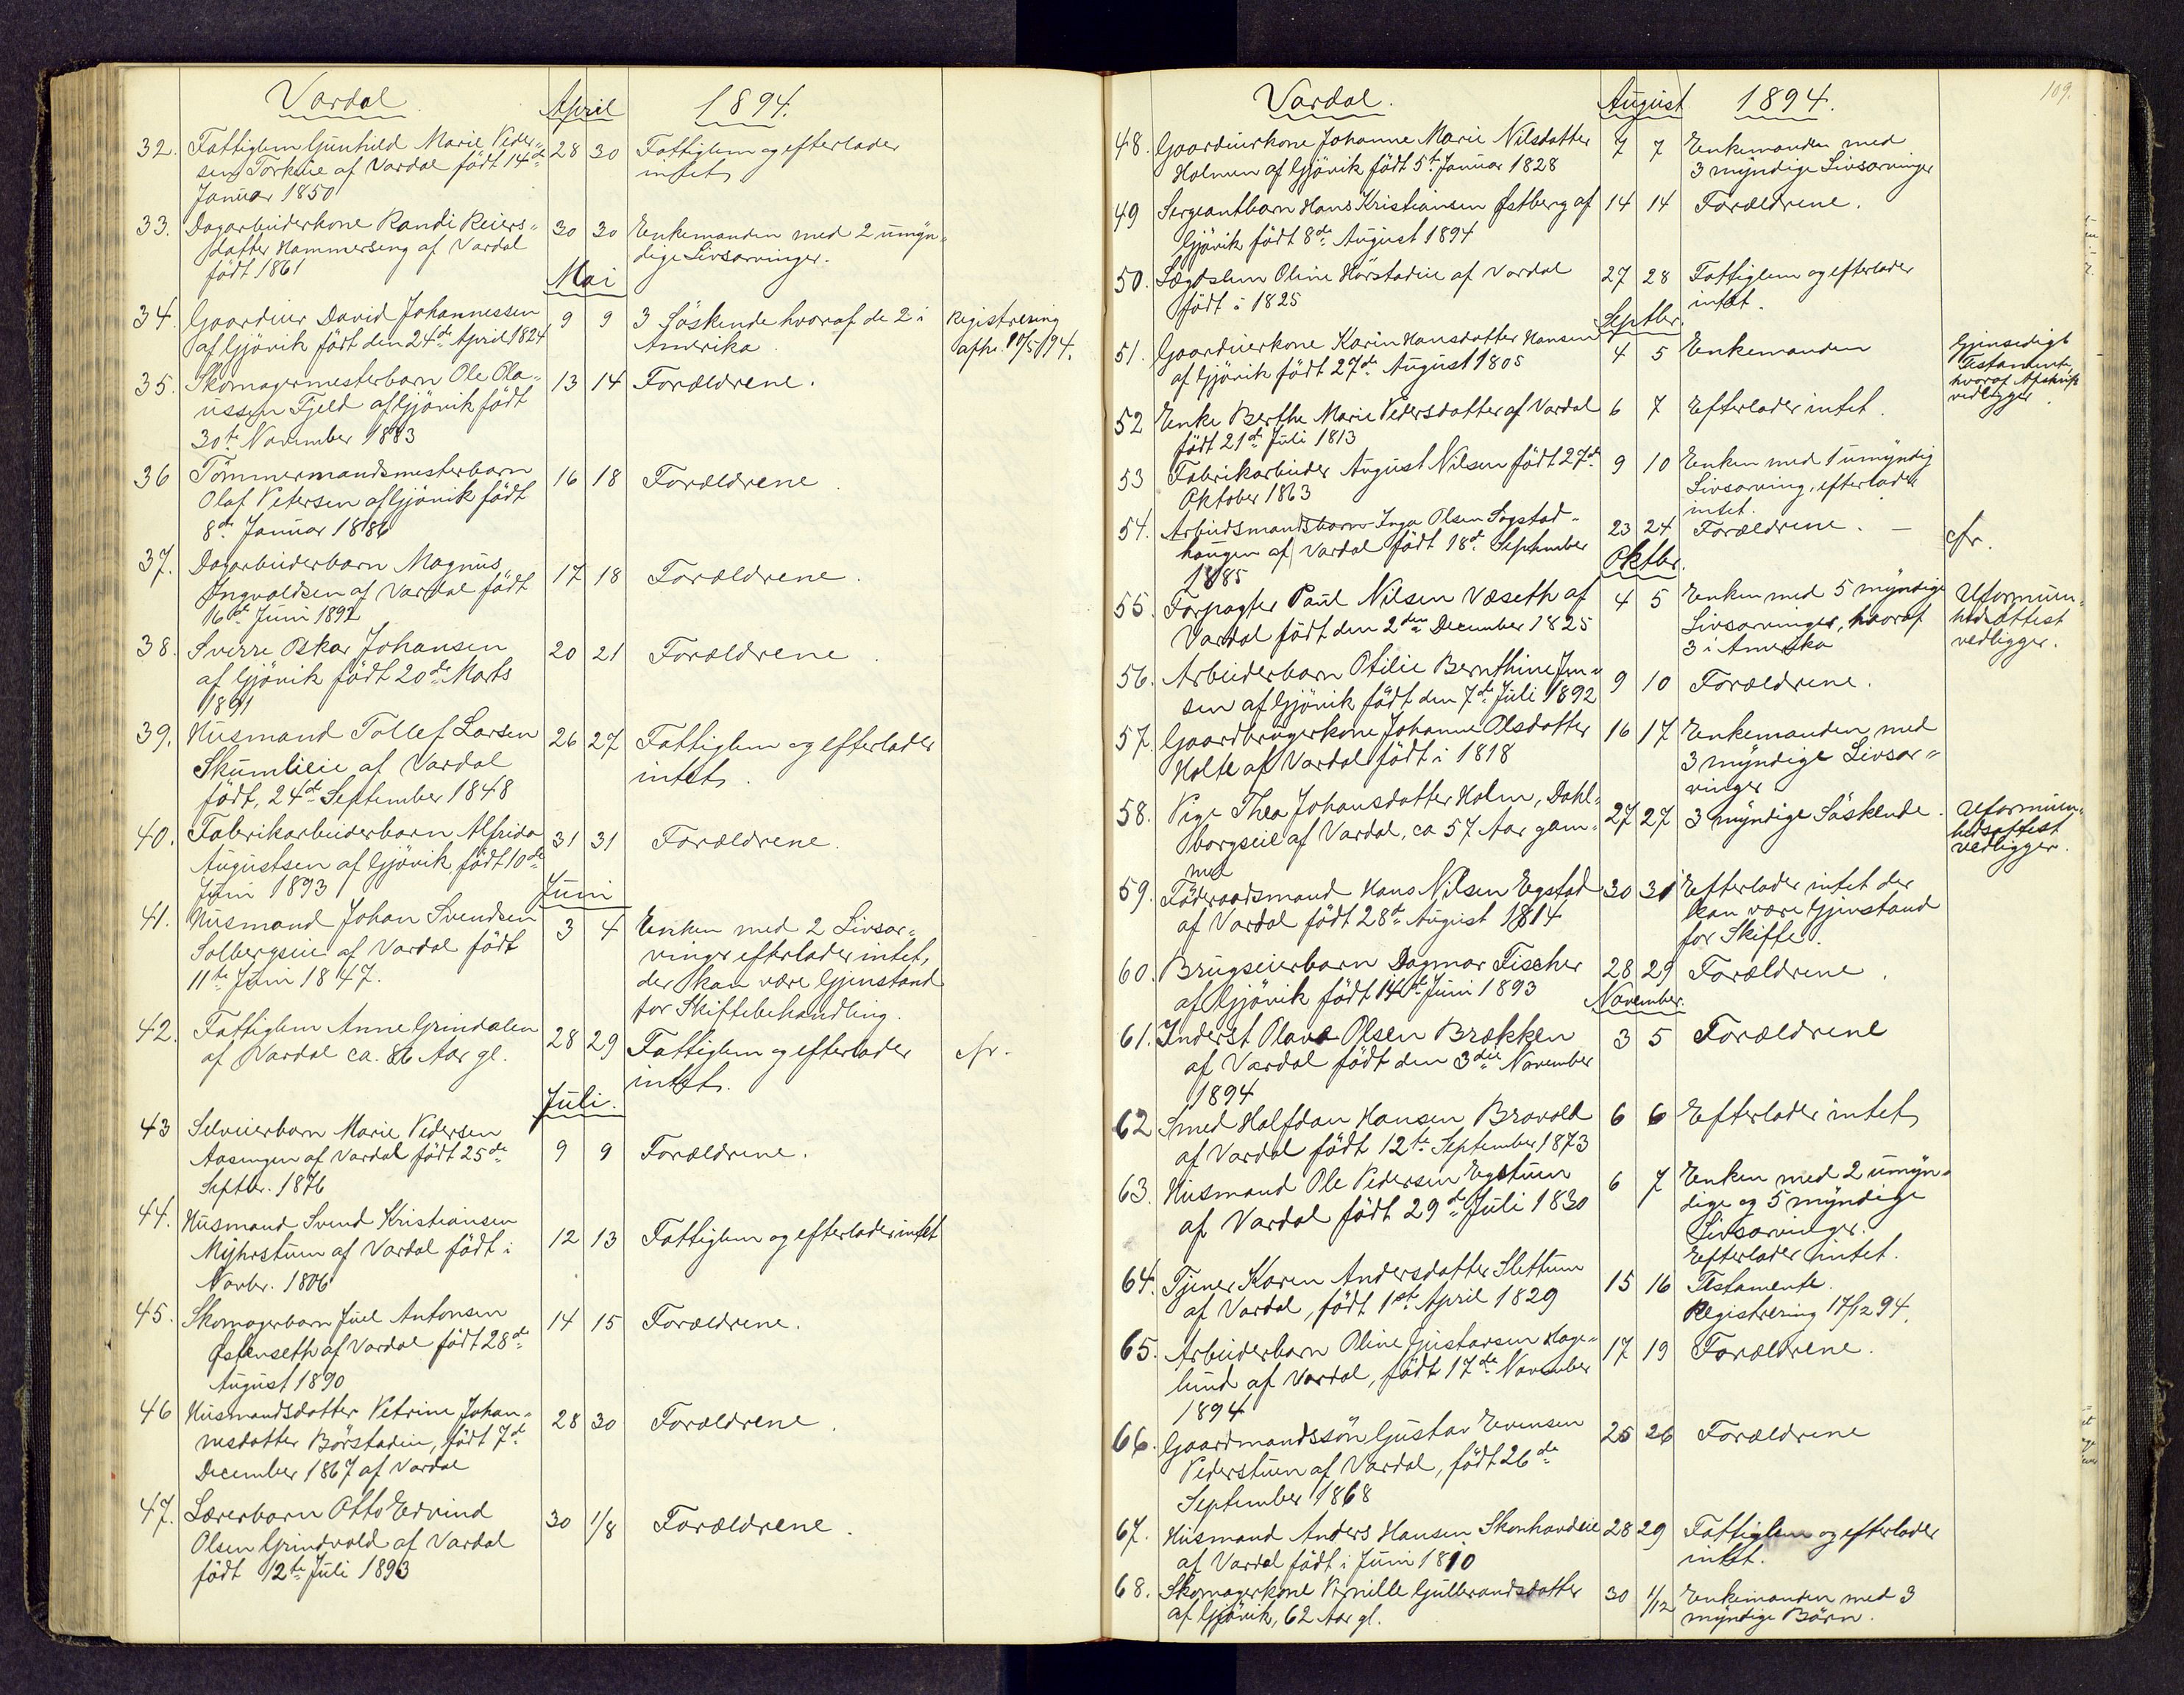 Vardal. April 1894.
32. Fattiglem Gunhild Marie Peder- 28 30 Fattiglem og efterlader
sen Torkeie af Vardal født 14de intet
Januar 1850
33. Dagarbeiderkone Randi Reiers- 30 30 Enkemanden med 2 umyn-
datter Hammerseng af Vardal dige Livsarvinger.
født 1861
Mai
34. Gaardeier David Johannessen 9 9 3 Söskende hvoraf de 2 i Registrering
af Gjövik født den 24de April 1824 Amerika. afh. 10/5 94.
35. Skomagermesterbarn Ole Ola- 13 14 Forældrene.
ussen Fjeld af Gjövik født
30te November 1883
36 Tömmermandsmesterbarn 16 18 Forældrene.
Olaf Petersen af Gjövik født
8de Januar 1886
37. Dagarbeiderbarn Magnus 17 18 Forældrene.
Ingvoldsen af Vardal født
16de Juni 1892
38. Sverre Oskar Johansen 20 21 Forældrene.
af Gjövik født 20de Marts
1891
39. Husmand Tollef Larsen 26 27 Fattiglem og efterlader
Skumlieie af Vardal intet.
født, 24de September 1848
40. Fabrikarbeiderbarn Alfrida 31 31 Forældrene.
Augustsen af Gjövik født 10de
Juni 1893
Juni
41. Husmand Johan Svendsen 3 4 Enken med 2 Livsar-
Solbergseie af Vardal født vinger efterlader intet,
11te Juni 1847. der kan være Gjenstand
for Skiftebehandling.
42. Fattiglem Anne Grindalen 28 29 Fattiglem og efterlader cfr.
af Vardal ca. 86 Aar gl. intet.
Juli.
43 Selveierbarn Marie Pedersen 9 9 Forældrene.
Aasengen af Vardal født 25de
Septbr. 1876
44. Husmand Svend Kristiansen 12 13 Fattiglem og efterlader intet
Myhrstuen af Vardal født i
Novbr. 1806
45. Skomagerbarn Juel Antonsen 14 15 Forældrene.
Østenseth af Vardal født 28de
August 1890
46 Husmandsdatter Petrine Johan- 28 30 Forældrene.
nesdatter Börstadeie, født 7de
December 1867 af Vardal
47. Lærerbarn Otto Edvind 30 1/8 Forældrene.
Olsen Grindvold af Vardal
født 12te Juli 1893
Vardal. August 1894. 109.
48. Gaardeierkone Johanne Marie Nilsdatter 7 7 Enkemanden med
Holmen af Gjövik født 5te Januar 1828 3 myndige Livsarvinger
49 Sergeantbarn Hans Kristiansen Østberg af 14 14 Forældrene.
Gjövik født 8de August 1894
50. Lægdslem Oline Hörstadeie af Vardal 27 28 Fattiglem og efterlader
født i 1825 intet.
Septbr.
51. Gaardeierkone Karin Hansdatter Hansen 4 5 Enkemanden Gjensidigt
af Gjövik født 27de August 1805 Testament
hvoraf Afskrift
vedligger.
52 Enke Berthe Marie Pedersdatter af Vardal 6 7 Efterlader intet.
født 21de Juli 1813
53 Fabrikarbeider August Nilsen født 27de 9 10 Enken med 1 umyndig
Oktober 1863 Livsarving, efterlader
intet.
54. Arbeidsmandsbarn Inga Olsen Sogstad- 23 24 Forældrene. — cfr.
haugen af Vardal født 18de September
1885
Oktbr.
55. Forpagter Paul Nilsen Væseth af 4 5 Enken med 5 myndige Uformuen-
Vardal født den 2den December 1825 Livsarvinger, hvoraf hedsattest
3 i Amerika vedligger.
56. Arbeiderbarn Otilie Bernthine Jen- 9 10 Forældrene.
sen af Gjövik født den 7de Juli 1892
57. Gaardbrugerkone Johanne Olsdatter 16 17 Enkemanden med
Holte af Vardal født i 1818 3 myndige Livsar-
vinger
58. Pige Thea Johansdatter Holm, Dahl- 27 27 3 myndige Söskende. Uformuen-
borgseie af Vardal, ca 57 Aar gam- hedsattest
mel vedligger.
59. Föderaadsmand Hans Nilsen Egstad 30 31 Efterlader intet der
af Vardal født 28de August 1814 kan være Gjenstand
for Skifte.
60. Brugseierbarn Dagmar Fischer 28 29 Forældrene.
af Gjövik født 14de Juni 1893
November.
61. Inderst Olava Olsen Brækken 3 5 Forældrene
af Vardal født den 3die November
1894
62 Smed Halfdan Hansen Bravold 6 6 Efterlader intet
af Vardal født 12te September 1873
63. Husmand Ole Pedersen Egstuen 6 7 Enken med 2 umyn-
af Vardal født 29de Juli 1830 dige og 5 myndige
Livsarvinger.
Efterlader intet.
64. Tjener Karen Andersdatter Slettum 15 16 Testamente.
af Vardal, født 1ste April 1829 Registrering 17/12 94.
65. Arbeiderbarn Oline Gustavsen Hage- 17 19 Forældrene.
lund af Vardal, født 17de November
1894
66. Gaardmandssön Gustav Evensen 25 26 Forældrene
Pederstuen af Vardal, født 26de
September 1868
67. Husmand Anders Hansen Skonhardeie 28 29 Fattiglem og efterlader
af Vardal født i Juni 1810 intet.
68. Skomagerkone Pernille Gulbrandsdatter 30 1/12 Enkemanden med 3
af Gjövik, 62 Aar gl. myndige Börn.